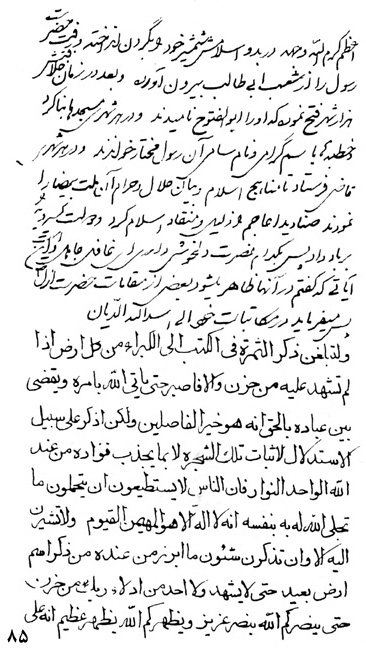 اعظم کرم الله وجهه در بدو اسلامش شمشیر خود و بگردن انداخته و رفت حضرت
رسول را از شعب ابی طالب بیرون آورده و بعد در زمان خلافتش
هزار شهر فتح نموده که او را ابو الفتوح نامیدند و در هر شهری مسجدها بنا کرد
و خطبه ها باسم گرامی و نام سامی آن رسول مختار خواندند و در هر شهر
قاضی فرستاد تا مناهج اسلام و بیان حلال و حرام آن ملت بیضا را
نمودند صنادید اعاجم را ذلیل و منقاد اسلام کرد و دولت کسرویه
بر باد داد پس کدام نصرت دلخوشی داری ای غافل جاهل
آیاتی که گفتم در آنها ظاهر میشود بعضی از مقامات حضرت ازل
پس میفرماید در مکاتبات خود الی اسد الله الدیان
ولتبلغن ذکر الثمرة فی الکتب الی الکبراء من کل ارض اذا
لم تشهد علیه من حزن والا فاصبر حتی یأتی الله بامره ویقضی
بین عباده بالحق انه هو خیر الفاصلین ولکن اذکر علی سبیل
الاستدلال لاثبات تلک الشجرة لا بما یجذب فؤاده من عند
الله الواحد النوار فان الناس لا یستطیعون ان یتحملون ما
تجلی الله له به بنفسه انه لا اله الا هو المهیمن القیوم ولا تشیرن
الیه الا وان تذکرن شئون ما ابرز من عنده من ذکر اهم
ارض بعید حتی لا یشهد ولا احد من ادلاء من حزن
حتی ینصرکم الله بنصر عزیز ویظهرکم الله بظهر عظیم انه علی
۸۵